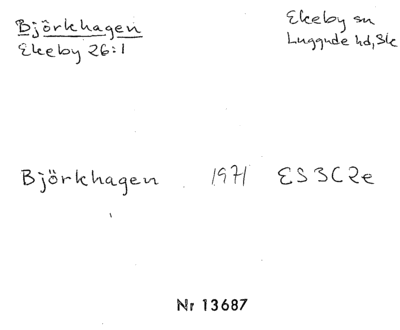 Björkhagen
Ekeby 26:1
Ekeby sn
Luggude hd, Sk
Björkhagen 1971 ES3C2e
Nr 13687